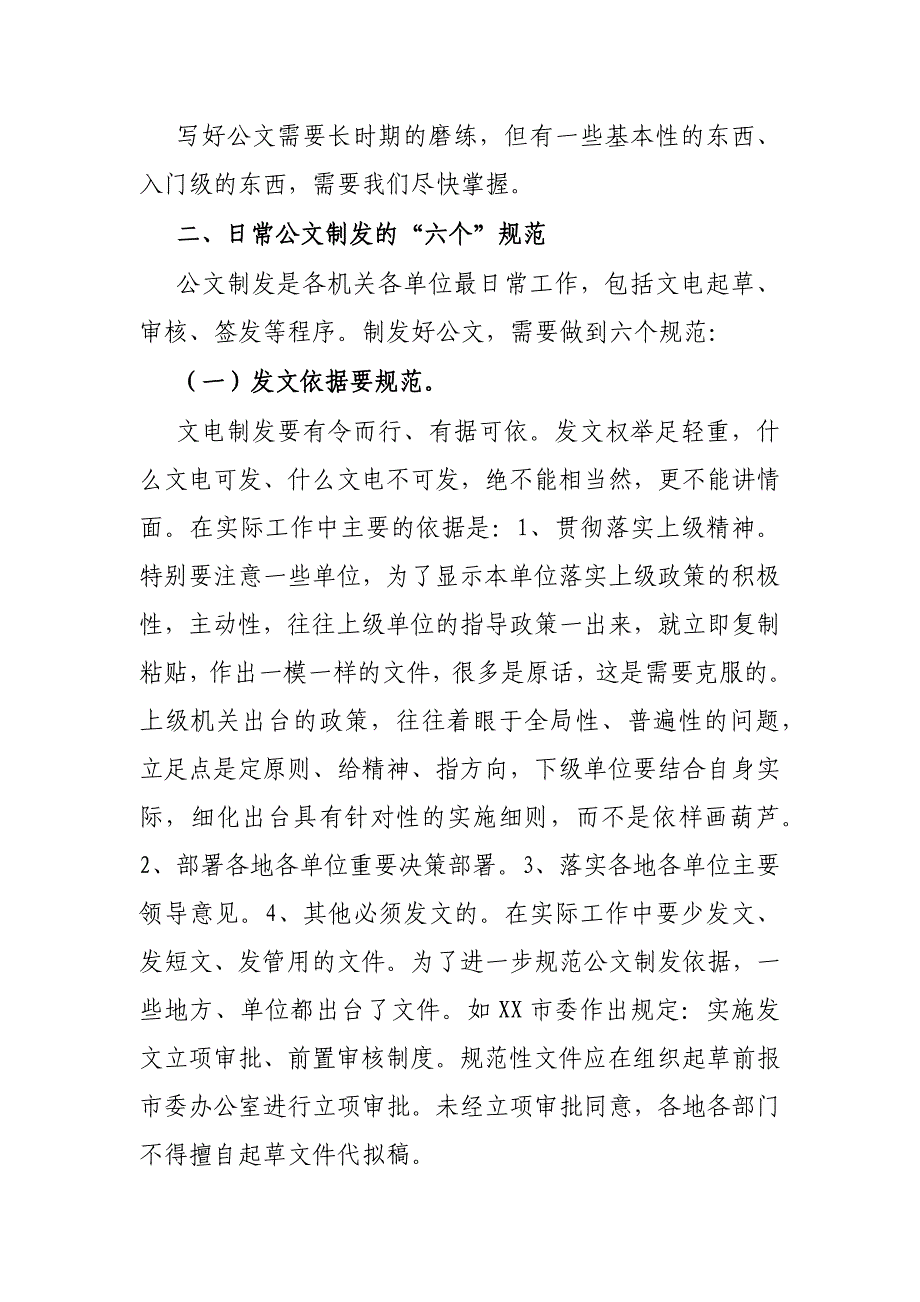 写好公文需要长时期的磨练，但有一些基本性的东西、
入门级的东西，需要我们尽快掌握。
二、日常公文制发的“六个”规范
公文制发是各机关各单位最日常工作，包括文电起草、
审核、签发等程序。制发好公文，需要做到六个规范：
（一）发文依据要规范。
文电制发要有令而行、有据可依。发文权举足轻重，什
么文电可发、什么文电不可发，绝不能相当然，更不能讲情
面。在实际工作中主要的依据是：1、贯彻落实上级精神。
特别要注意一些单位，为了显示本单位落实上级政策的积极
性，主动性，往往上级单位的指导政策一出来，就立即复制
粘贴，作出一模一样的文件，很多是原话，这是需要克服的。
上级机关出台的政策，往往着眼于全局性、普遍性的问题，
立足点是定原则、给精神、指方向，下级单位要结合自身实
际，细化出台具有针对性的实施细则，而不是依样画葫芦。
2、部署各地各单位重要决策部署。3、落实各地各单位主要
领导意见。4、其他必须发文的。在实际工作中要少发文、
发短文、发管用的文件。为了进一步规范公文制发依据，一
些地方、单位都出台了文件。如 XX 市委作出规定：实施发
文立项审批、前置审核制度。规范性文件应在组织起草前报
市委办公室进行立项审批。未经立项审批同意，各地各部门
不得擅自起草文件代拟稿。